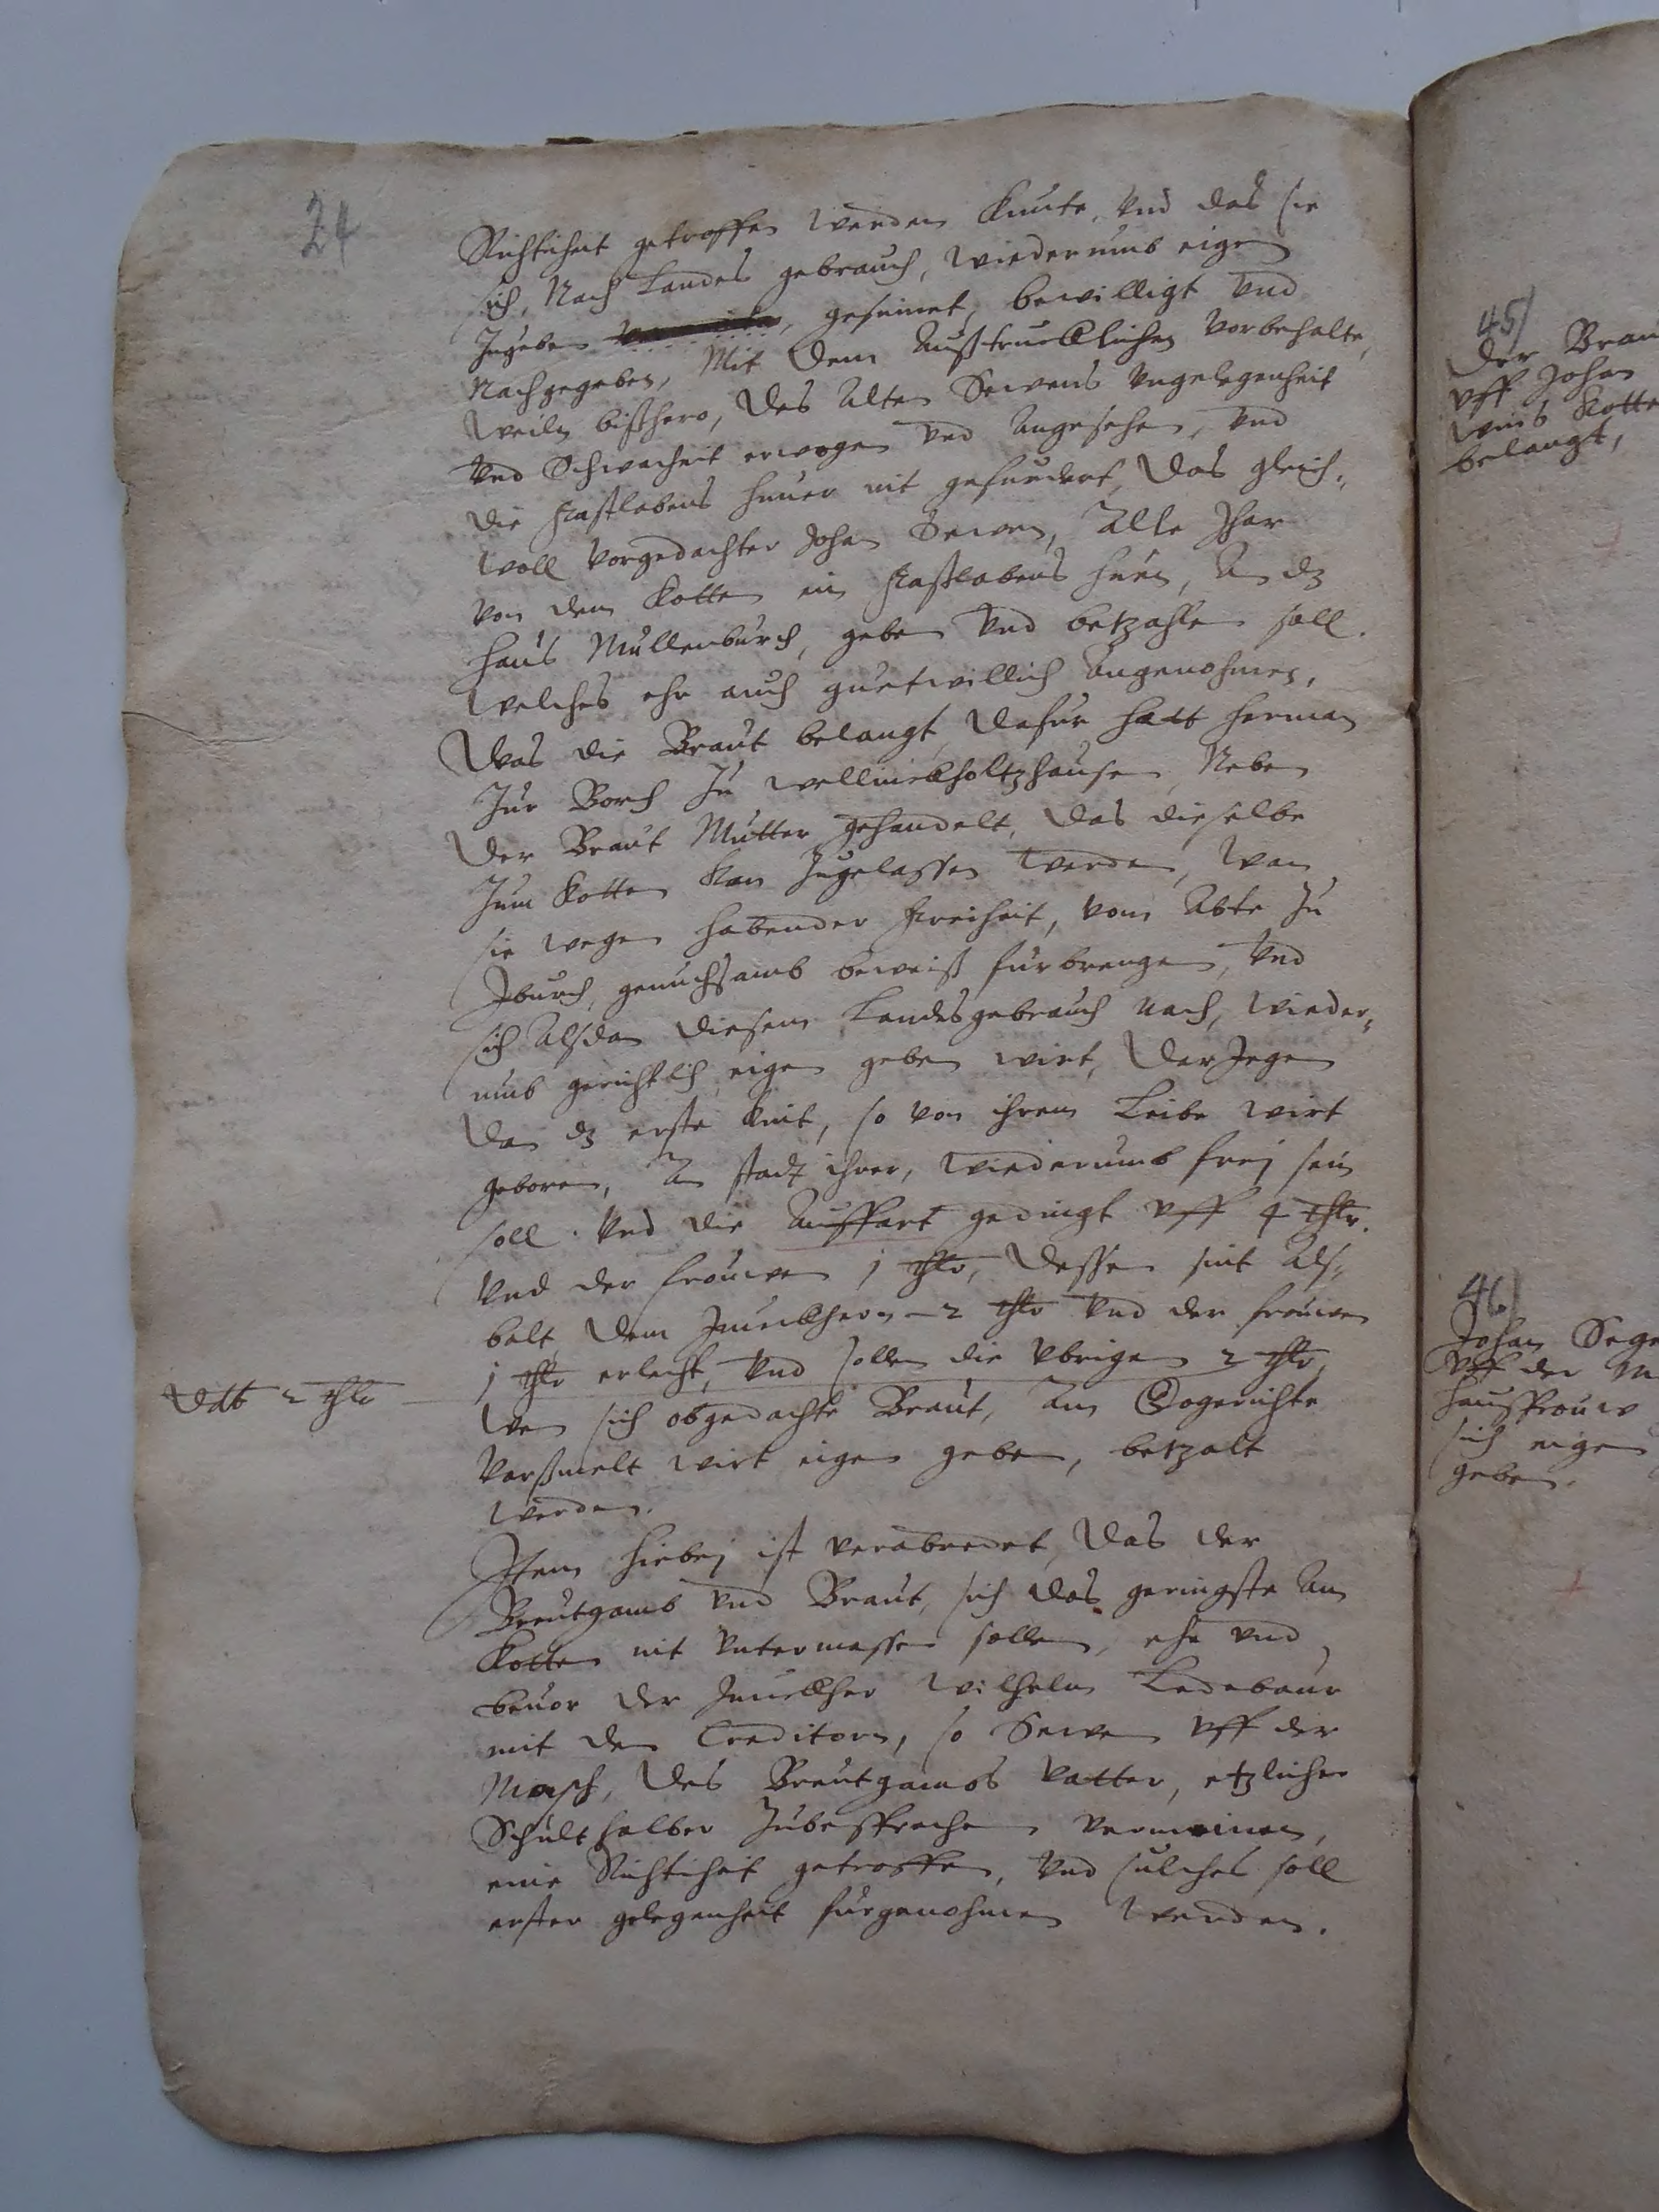 24
Richticheit getroffen werden konte, vnd das sie
sich, Nach Landes gebrauch, wiederumb eigen
Zugeben, gesinnet, bewilligt vnd
Nachgegeben, Mit dem Außtrucklichen vorbehalte,
weiln bißhero, des alten Sewens vngelegenheit
vnd Schwacheit erwogen vnd angesehen, vnd
die fastlabens huner nit gefurdert, das gleich-
woll vorgedachter Johan Sewen, alle Jhar
von dem Kotten ein fastlabens hun, an dz
haus Mullenburch, geben vnd betzahlen soll.
welches ehr auch guetwillich angenohmen,
Was die Braut belangt, dafur hatt herman
Zur Borch Zu wellinckholtzhausen, Neben
der Braut Mutter gehandelt, das dieselbe
Zum Kotten kan Zugelassen werden, wan
sie wegen habender freiheit, vom Abte Zu
Iburch, genuchsamb beweiß furbrengen, vnd
sich alsdan diesem Landesgebrauch nach, wieder-
umb gerichtlich eigen geben wirt, darJegen
dan dz erste kint, so von ihrem Leibe wirt
geboren, an stadt ihrer, wiederumb frej sein
soll. vnd die Auffart gedingt vff 4 thlr.
vnd der frouwen 1 thlr, dessen sint als-
balt, dem Junckhern - 2 thlr vnd der frouwen
1 thlr erlecht, vnd sollen die vbrigen 2 thlr,
ddt 2 thlr
wen sich obgedachte Braut, am Gogerichte
Varßmelt wirt eigen geben, betzalt
werden.
Item hiebej ist verabredet, das der
Breutgamb vnd Braut, sich das geringste am
Kotten nit vntermassen sollen, ehe vnd
beuor der Junckher Wilhelm Ledebaur
mit den Creditorn, so Sewen vff der
Masch, des Breutgambs vatter, etzlicher
Schult halber Zubesprechen vermeinen,
eine Richticheit getroffen, vnd sulches soll
erster gelegenheit furgenohmen werden.
45/
der Brau
vff Johan
Kotte
belangt,
46/
Johan Sege
vff der M
hausfrouw
sich eigen
geben.